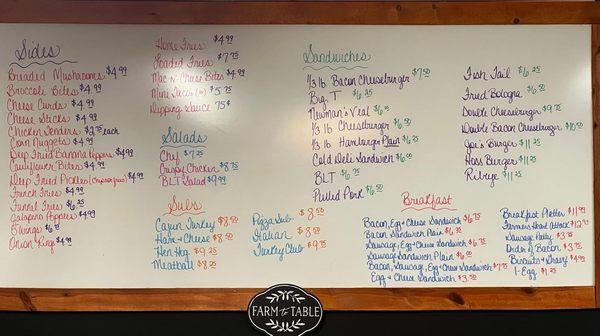 Sides
Breaded Mushrooms $4.99
Broccoli Bites $4.99
Cheese Curds $4.99
Cheese Sticks $4.99
Chicken Tenders $2.75 each
Corn Nuggets $4.99
Deep Fried Banana Peppers $4.99
Cauliflower Bites $4.99
Deep Fried Pickles $4.99
French Fries $4.99
Funnel Fries $6.25
Jalapeno Poppers $4.99
5 Wings $6.75
Onion Rings $4.99
Home Fries $4.99
Loaded Fries $7.75
Mac-n-Cheese Bites $4.99
Mini Tacos $5.75
Dipping Sauce 75¢
Salads
Chef $7.25
Crispy Chicken $8.75
BLT Salad $9.99
Subs
Cajun Turkey $8.50
Ham & Cheese $8.50
Hen Hog $9.25
Meatball $8.25
Pizza Sub $8.50
Italian $8.50
Turkey Club $9.75
Sandwiches
1/3 lb Bacon Cheeseburger $7.50
Big T $6.25
Newman's Veal $6.25
1/3 lb Cheeseburger $6.50
1/3 lb Hamburger Plain $6.25
Cold Deli Sandwich $6.00
BLT $6.75
Pulled Pork $6.50
Fish Tail $6.25
Fried Bologna $6.50
Double Cheeseburger $9.75
Double Bacon Cheeseburger $10.50
Joe's Burger $11.25
Hoss Burger $11.25
Ribeye $11.25
Breakfast
Bacon, Egg & Cheese Sandwich $6.75
Bacon Sandwich Plain $6.25
Sausage, Egg & Cheese Sandwich $6.75
Sausage Sandwich Plain $6.00
Bacon, Sausage, Egg & Cheese Sandwich $7.75
Egg & Cheese Sandwich $3.50
Breakfast Platter $11.99
Farmers Heart Attack $12.99
Sausage Patty $3.75
Order of Bacon $3.75
Biscuits & Gravy $4.99
1-Egg $1.25
FARM to TABLE